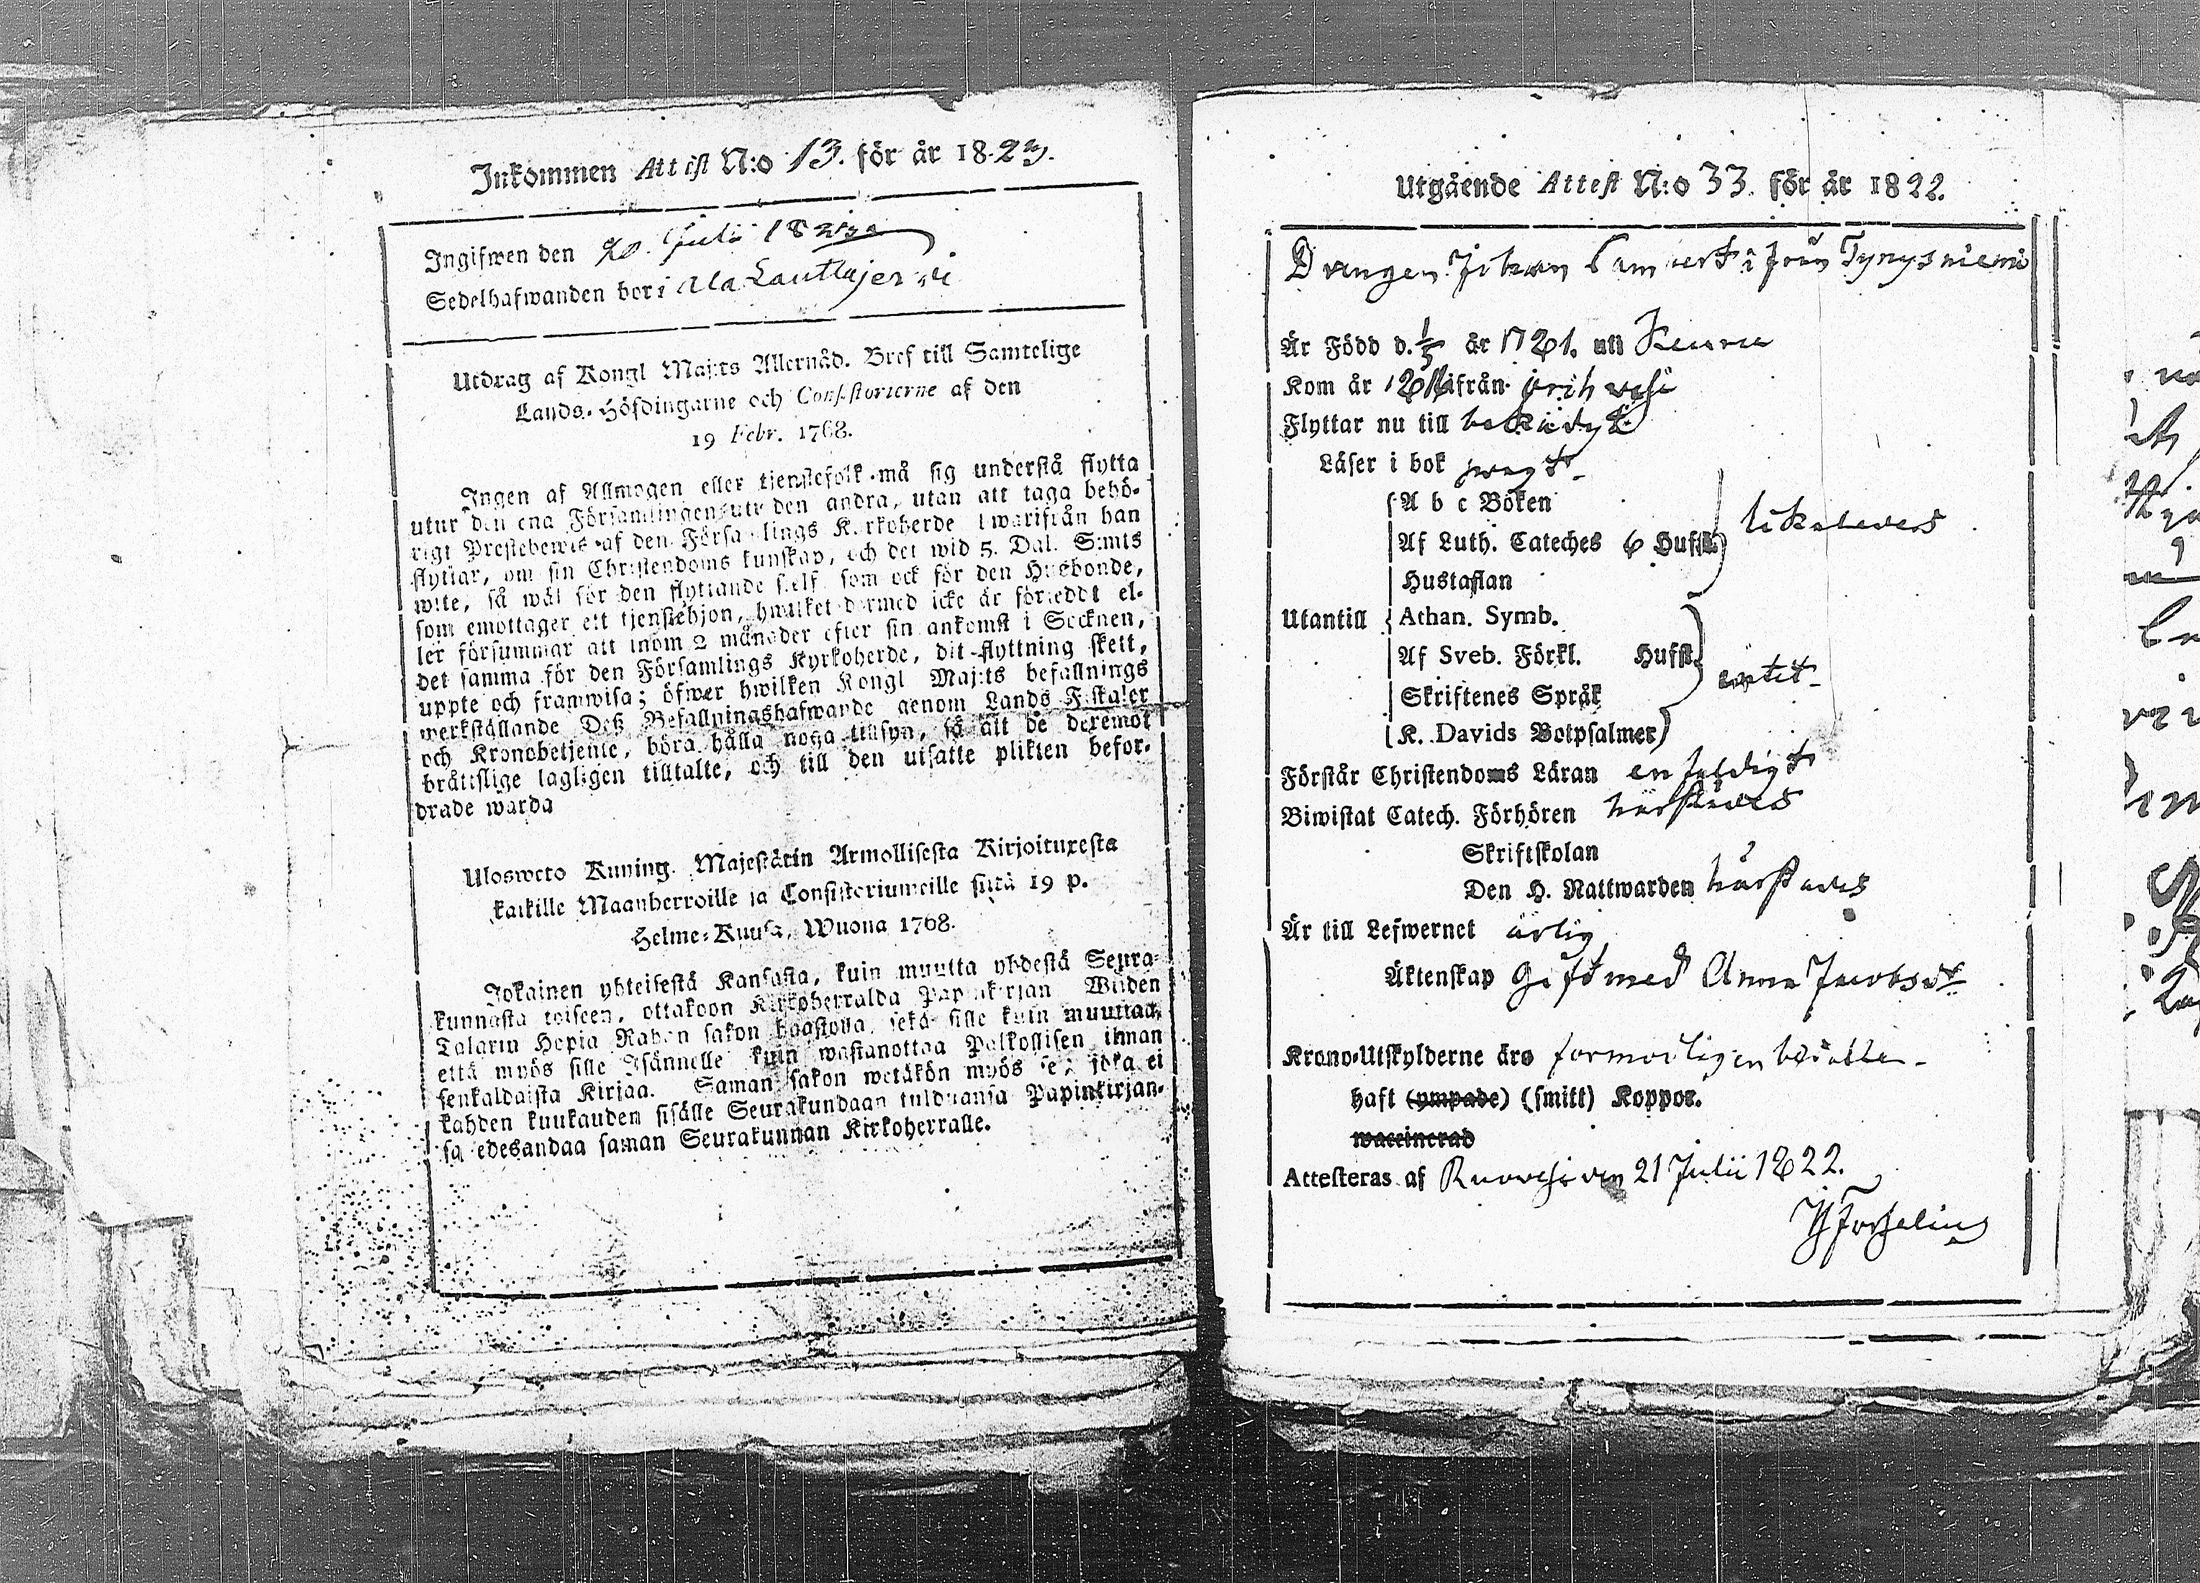 Inkommen Attest N:o 13. för år 1823.
Ingifwen den 20. Julii
Sedelhafwanden bor i Ala Lauttajerwi
Utdrag af Kongl Maj:ts Allernåd. Bref till Samtelige
Lands-Höfdingarne och Consistorierne af den
19 Febr. 1768.
Ingen af Allmogen eller tjenstefolk må sig understå flytta
utur den ena Församlingen uti den andra, utan att taga behö-
rigt Prestebewis af den Församlings Kyrkoherde hwarifrån han
flyttar, om sin Christendoms kunskap, och det wid 5. Dal. S:mts
wite, så wäl för den flyttande sjelf som ock för den Husbonde,
som emottager ett tjenstehjon, hwilket dermed icke är förseddt el-
ler försummar att inom 2 månader efter sin ankomst i Socknen,
det samma för den Församlings Kyrkoherde, dit flyttning skett,
uppte och framwisa; öfwer hwilken Kongl Maj:ts befallnings
werkställande Deß Befallningshafwande genom Lands Fiskaler
och Kronobetjente, böra hålla noga tillsyn, så att de deremot
bråttslige lagligen tilltalte, och till den utsatte plikten befor-
drade warda
Ulosweto Kuning. Majestätin Armollisesta Kirjoituxesta
kaikille Maanherroille ja Consistoriumeille siitä 19 p.
Helme-Kuusa, Wuona 1768.
Jokainen yhteisestä Kansasta, kuin muutta yhdestä Seura-
kunnasta toiseen, ottakoon Kirkoherralda Papinkirjan Wiiden
Talarin Hopia Rahan sakon haastolla, sekä sille kuin muuttaa,
että myös sille Isännelle kuin wastanottaa Palkollisen ilman
senkaldaista Kirjaa. Saman sakon wetäkön myös se, joka ei
kahden kuukauden sisälle Seurakundaan tulduansa Papinkirjan-
sa edesandaa saman Seurakunnan Kirkoherralle.
Utgående Attest N:o 33. för år 1822.
Drengen Johan Lambert ifrån Tynysniemi
Är Född d. 1/5 år 1781. uti Keuru
Kom år ifrån
Flyttar nu till
Läser i bok swagt
A b c Boken
Af Luth. Cateches 6 Hufst. likaledes
Hustaflan
Utantill Athan. Symb.
Af Sveb. Förkl. Hufst. intet
Skriftenes Språk
K. Davids Botpsalmer
Förstår Christendoms Läran enfaldigt
Biwistat Catech. Förhören härstädes
Skriftskolan
Den H. Nattwarden härstädes
Är till Lefwernet ärlig
Äktenskap Gift med Anna Jacobsdr
Krono-Utskylderne äro förmodligen betalte
haft (ympade) (smitt) Koppor.
waccinerad
Attesteras af Ruovesi den 21 Julii 1822.